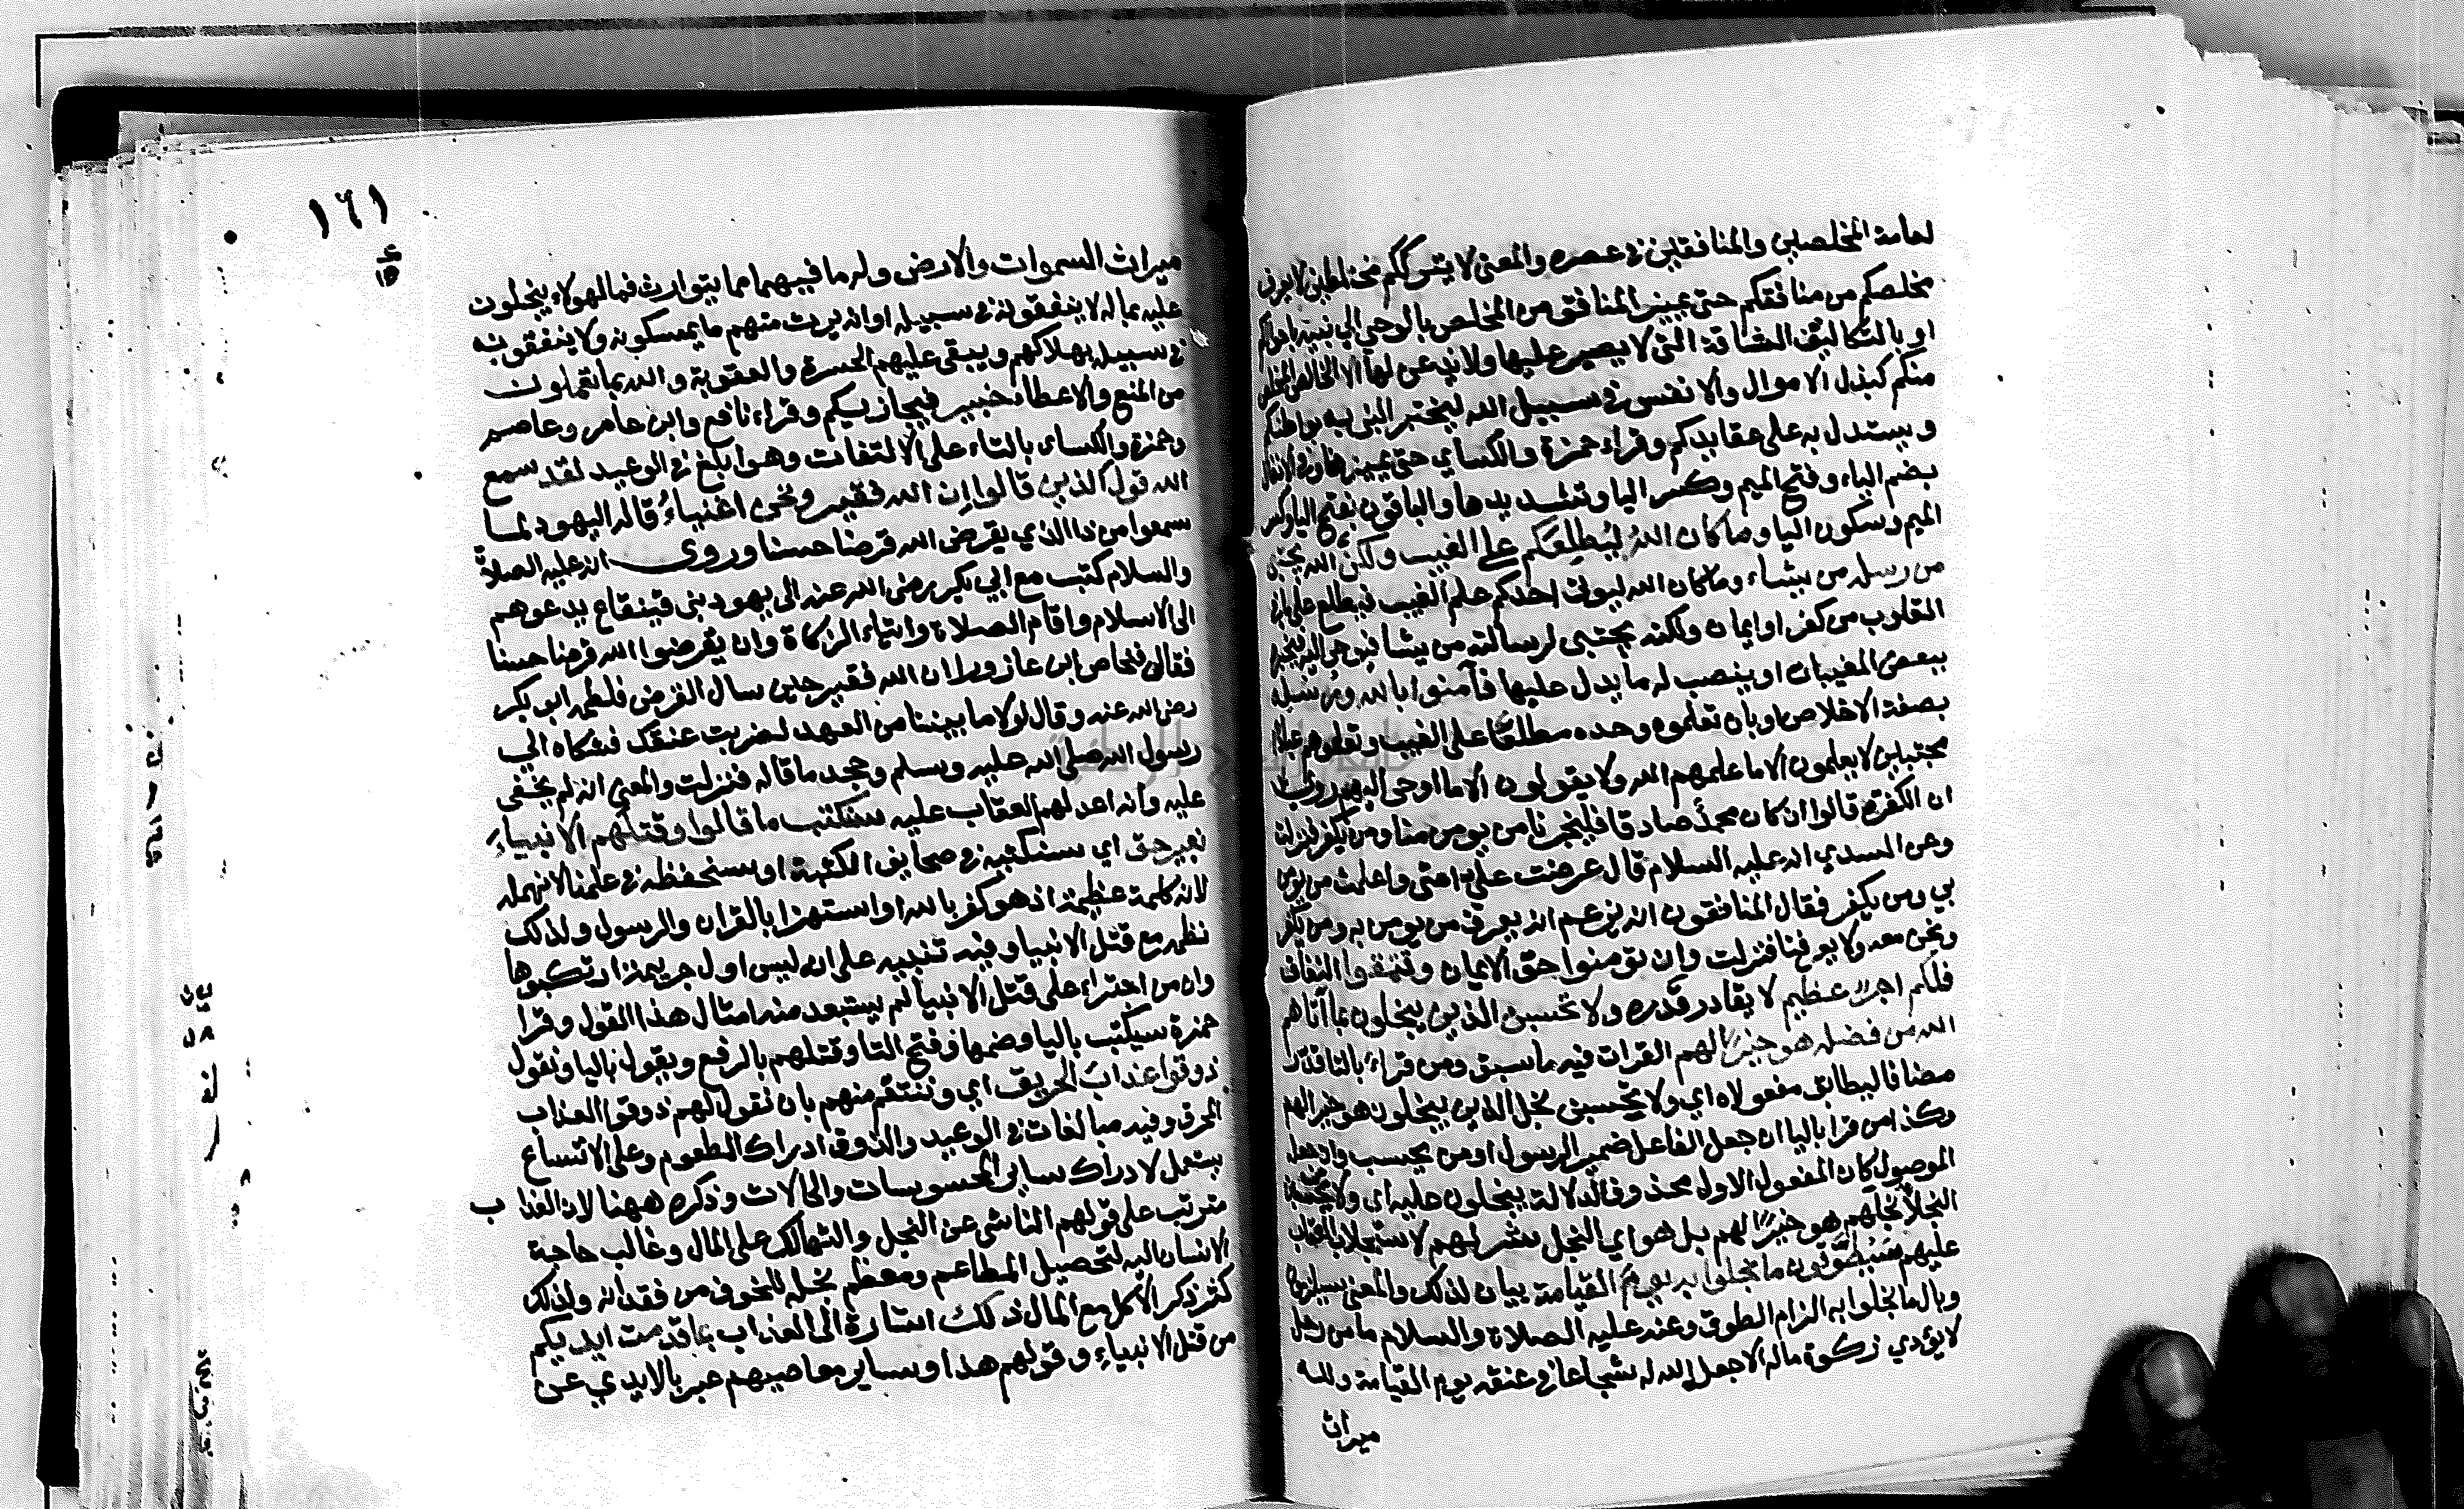 لعامة المخلصين والمنافقين في عصره والمعنى لا يترككم مختلطين لا يعرف
مخلصكم من منافقكم حتى يميز المنافق من المخلص بالوحي الى نبيه باحوالكم
او بالتكاليف الشاقة التي لا يصبر عليها ولا يذعن لها الا الخالص المخلص
منكم كبذل الاموال والانفس في سبيل الله ليختبر النبي به بواطنكم
ويستدل به على عقايدكم وقراء حمزة والكساي حتى يميز هنا وفي الانفال
بضم الياء وفتح الميم وكسر اليا وتشديدها والباقون بفتح اليا وكسر
الميم وسكون اليا وما كان الله ليطلعكم على الغيب ولكن الله يجتبي
من رسله من يشاء وما كان الله ليوتي احدكم علم الغيب فيطلع على ما في
القلوب من كفر او ايمان ولكنه يجتبي لرسالته من يشا فيوحي اليه ويخبره
ببعض المغيبات او ينصب له ما يدل عليها فآمنوا بالله ورسله
بصفة الاخلاص او بان تعلموه وحده مطلعا على الغيب وتعلموهم عبادا
مجتبين لا يعلمون الا ما علمهم الله ولا يقولون الا ما اوحي اليهم روي
ان الكفرة قالوا ان كان محمد صادقا فليخبرنا من يومن منا ومن يكفر فنزلت
وعن السدي انه عليه السلام قال عرضت علي امتي واعلمت من يومن
بي ومن يكفر فقال المنافقون انه يزعم انه يعرف من يومن به ومن يكفر
ونحن معه ولا يعرفنا فنزلت وان تؤمنوا حق الايمان وتتقوا النفاق
فلكم اجر عظيم لا يقادر قدره ولا تحسبن الذين يبخلون بما آتاهم
الله من فضله هو خيرا لهم القرات فيه ما سبق ومن قراء بالتا قدر
مضافا ليطابق مفعولاه اي ولا تحسبن بخل الذين يبخلون هو خيرا لهم
وكذا من قرا باليا ان جعل الفاعل ضمير الرسول او من يحسب وان جعل
الموصول كان المفعول الاول محذوفا لدلالة يبخلون عليه اي ولا يحسبن
البخلا بخلهم هو خيرا لهم بل هو اي البخل شر لهم لاستجلاب العقاب
عليهم سيطوقون ما بخلوا به يوم القيامة بيان لذلك والمعنى سيلزمون
وبال ما بخلوا به الزام الطوق وعنه عليه الصلاة والسلام ما من رجل
لا يؤدي زكوة ماله الا جعل الله له شجاعا في عنقه يوم القيامة ولله
ميراث
١٦١
ميراث السموات والارض وله ما فيهما مما يتوارث فما لهولاء يبخلون
عليه بماله لا ينفقونه في سبيله او انه يرث منهم ما يمسكونه ولا ينفقونه
في سبيله بهلاكهم ويبقى عليهم الحسرة والعقوبة والله بما تعملون
من المنع والاعطاء خبير فيجازيكم وقراء نافع وابن عامر وعاصم
وحمزة والكساي بالتاء على الالتفات وهو ابلغ في الوعيد لقد سمع
الله قول الذين قالوا ان الله فقير ونحن اغنياء قاله اليهود لما
سمعوا من ذا الذي يقرض الله قرضا حسنا وروي انه عليه الصلاة
والسلام كتب مع ابي بكر رضي الله عنه الى يهود بني قينقاع يدعوهم
الى الاسلام واقام الصلاة وايتاء الزكاة وان يقرضوا الله قرضا حسنا
فقال فنحاص ابن عازورا ان الله فقير حين سال القرض فلطمه ابو بكر
رضي الله عنه وقال لولا ما بيننا من العهد لضربت عنقك فشكاه الى
رسول الله صلى الله عليه وسلم وجحد ما قاله فنزلت والمعنى انه لم يخفى
عليه وانه اعد لهم العقاب عليه سنكتب ما قالوا وقتلهم الانبياء
بغير حق اي سنكتبه في صحايف الكتبة او سنحفظه في علمنا لا نهمله
لانه كلمة عظيمة اذ هو كفر بالله او استهزا بالقران والرسول ولذلك
نظمه مع قتل الانبيا وفيه تنبيه على انه ليس اول جريمة ارتكبوها
وان من اجتراء على قتل الانبيا لم يستبعد منه امثال هذا القول وقرا
حمزة سيكتب باليا وضمها وفتح التا وقتلهم بالرفع ويقول باليا ونقول
ذوقوا عذاب الحريق اي وننتقم منهم بان نقول لهم ذوقوا العذاب
المحرق وفيه مبالغات في الوعيد والذوق ادراك الطعوم وعلى الاتساع
يستعمل لادراك ساير المحسوسات والحالات وذكره ههنا لان العذاب
مترتب على قولهم الناشي عن البخل والتهالك على المال وغالب حاجة
الانسان اليه لتحصيل المطاعم ومعظم بخله للخوف من فقدانه ولذلك
كثر ذكر الاكل مع المال ذلك اشارة الى العذاب بما قدمت ايديكم
من قتل الانبياء وقولهم هذا وساير معاصيهم عبر بالايدي عن